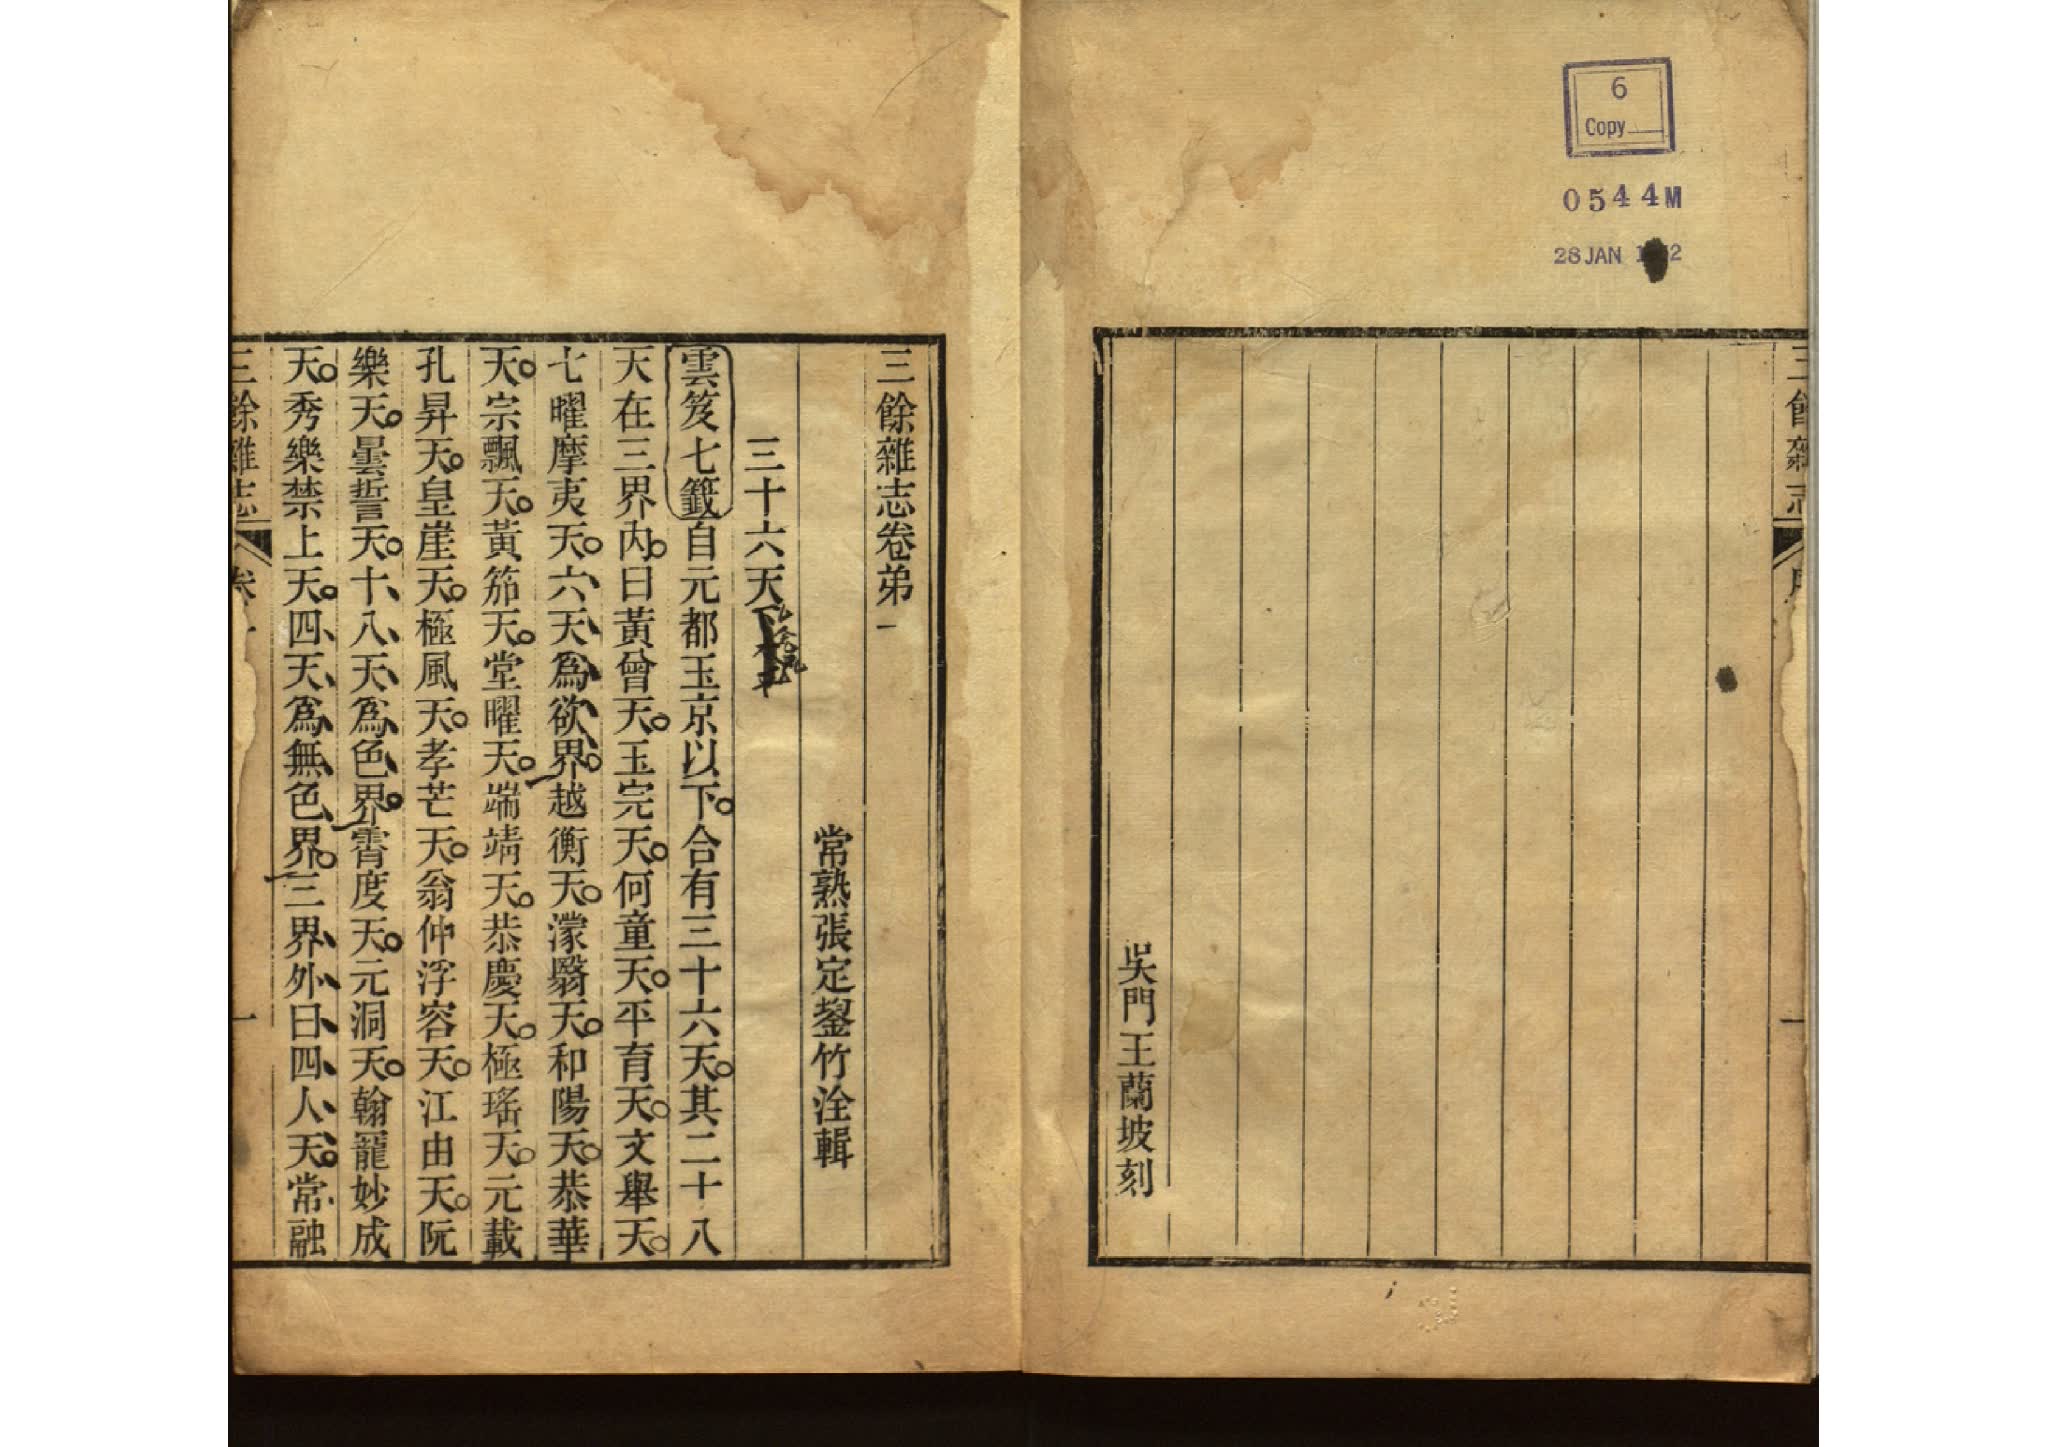 6
Copy
0544M
28 JAN
三餘雜志
一
吳門王蘭坡刻
三餘雜志卷弟一
常熟張定鋆竹洤輯
三十六天
雲笈七籤自元都玉京以下合有三十六天其二十八
天在三界內曰黃曾天玉完天何童天平育天文舉天
七曜摩夷天六天為欲界越衡天濛翳天和陽天恭華
天宗飄天黃笳天堂曜天端靖天恭慶天極瑤天元載
孔昇天皇崖天極風天孝芒天翁仲浮容天江由天阮
樂天曇誓天十八天為色界霄度天元洞天翰寵妙成
天秀樂禁上天四天為無色界三界外曰四人天常融
三餘雜志
卷一
一